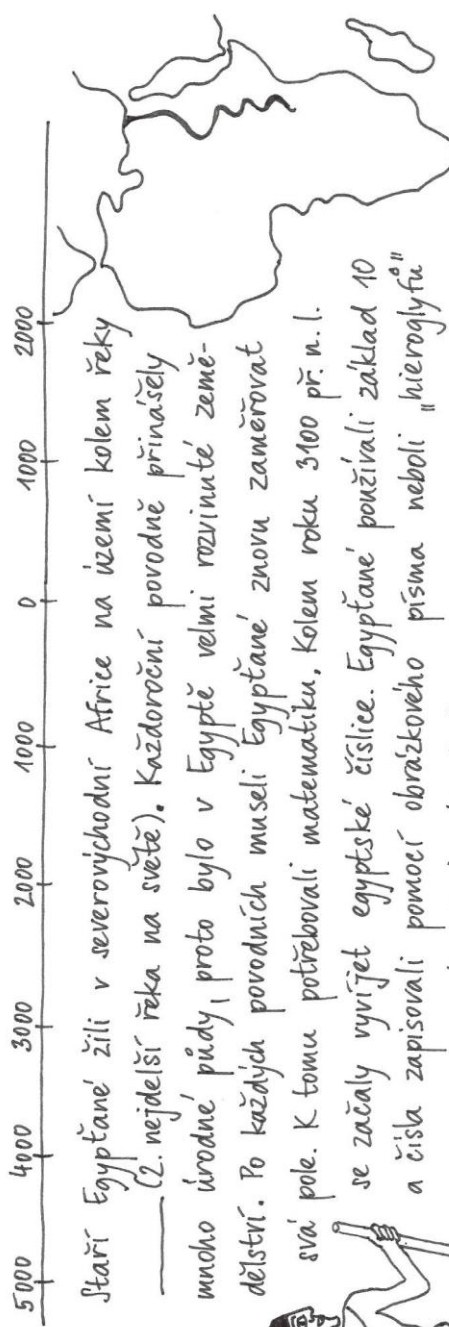 5000 4000 3000 2000 1000 0 1000 2000
Staří Egypťané žili v severovýchodní Africe na území kolem řeky
(2. nejdelší řeka na světě). Každoroční povodně přinášely
mnoho úrodné půdy, proto bylo v Egyptě velmi rozvinuté země-
dělství. Po každých povodních museli Egypťané znovu zaměřovat
svá pole. K tomu potřebovali matematiku. Kolem roku 3100 př. n. l.
se začaly vyvíjet egyptské číslice. Egypťané používali základ 10
a čísla zapisovali pomocí obrázkového písma neboli "hieroglyfů"